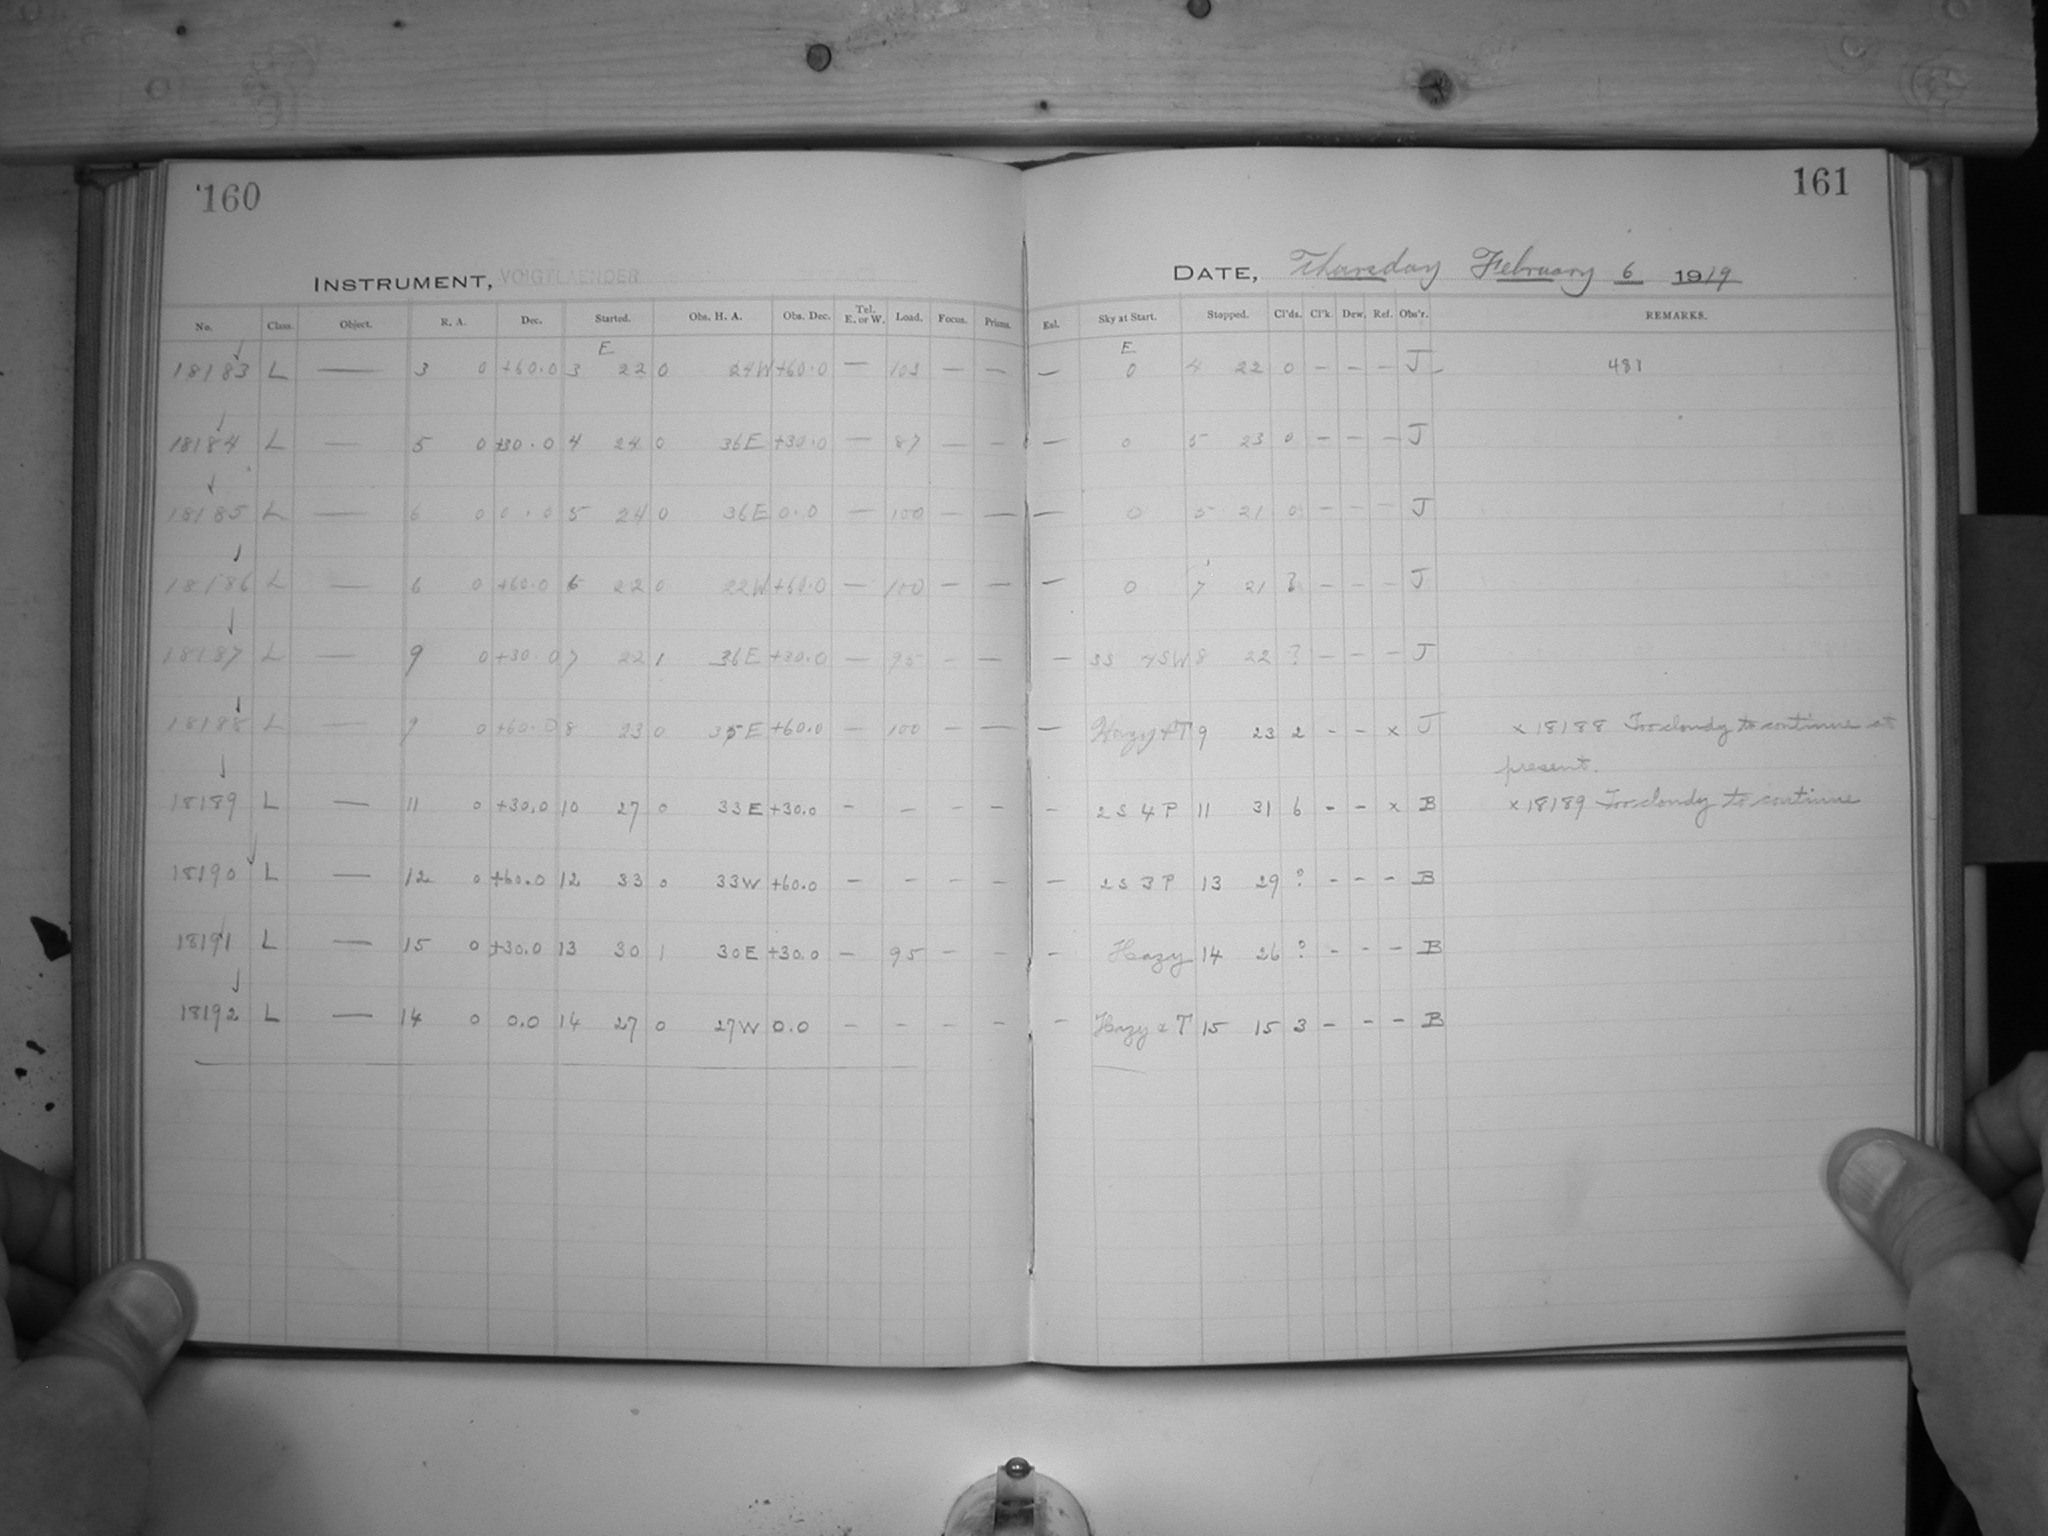 160
161
INSTRUMENT, VOIGTLAENDER
DATE, Thursday February 6 1919
No. Class. Object. R. A. Dec. Started. Obs. H. A. Obs. Dec. Tel. E. or W. Load. Focus. Prisms. Eal. Sky at Start. Stopped. Cl'ds. Cl'k. Dew. Ref. Obs'r. REMARKS.
E E
18183 L — 3 0 +60.0 3 22 0 24W +60.0 — 103 — — — 0 4 22 0 - - - J 481
18184 L — 5 0 +30.0 4 24 0 36E +30.0 — 87 — — — 0 5 23 0 - - - J
18185 L — 6 0 0.0 5 24 0 36E 0.0 — 100 — — — 0 5 21 0 - - - J
18186 L — 6 0 +60.0 6 22 0 22W +60.0 — 100 — — — 0 7 21 ? - - - J
18187 L — 9 0 +30.0 7 22 1 36E +30.0 — 95 - — — 3S 4SW 8 22 ? - - - J
18188 L — 9 0 +60.0 8 23 0 35E +60.0 — 100 — — — Hazy + T 9 23 2 - - x J x 18188 Too cloudy to continue at
present.
18189 L — 11 0 +30.0 10 27 0 33E +30.0 - - - - - 2S 4P 11 31 6 - - x B x 18189 Too cloudy to continue
18190 L — 12 0 +60.0 12 33 0 33W +60.0 - - - - - 2S 3P 13 29 ? - - - B
18191 L — 15 0 +30.0 13 30 1 30E +30.0 - 95 - - - Hazy 14 26 ? - - - B
18192 L — 14 0 0.0 14 27 0 27W 0.0 - - - - - Hazy & T 15 15 3 - - - B